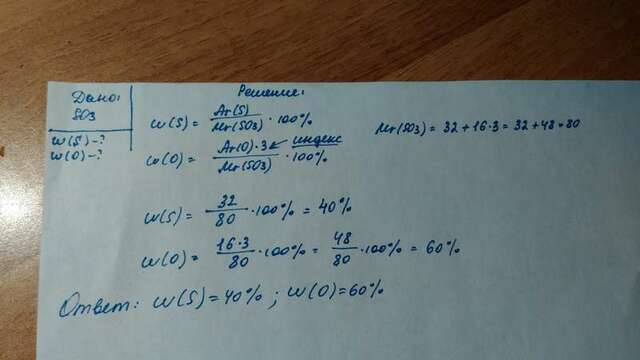 Дано:
SO₃
w(S)-?
w(O)-?
Решение:
w(S) = Ar(S)/Mr(SO₃) · 100%
Mr(SO₃) = 32 + 16·3 = 32 + 48 = 80
w(O) = Ar(O)·3/Mr(SO₃) · 100% ↙ индекс
w(S) = 32/80 · 100% = 40%
w(O) = 16·3/80 · 100% = 48/80 · 100% = 60%
Ответ: w(S) = 40%; w(O) = 60%